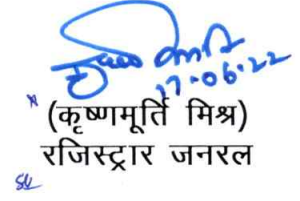 17.06.22
(कृष्णमूर्ति मिश्र)
रजिस्ट्रार जनरल